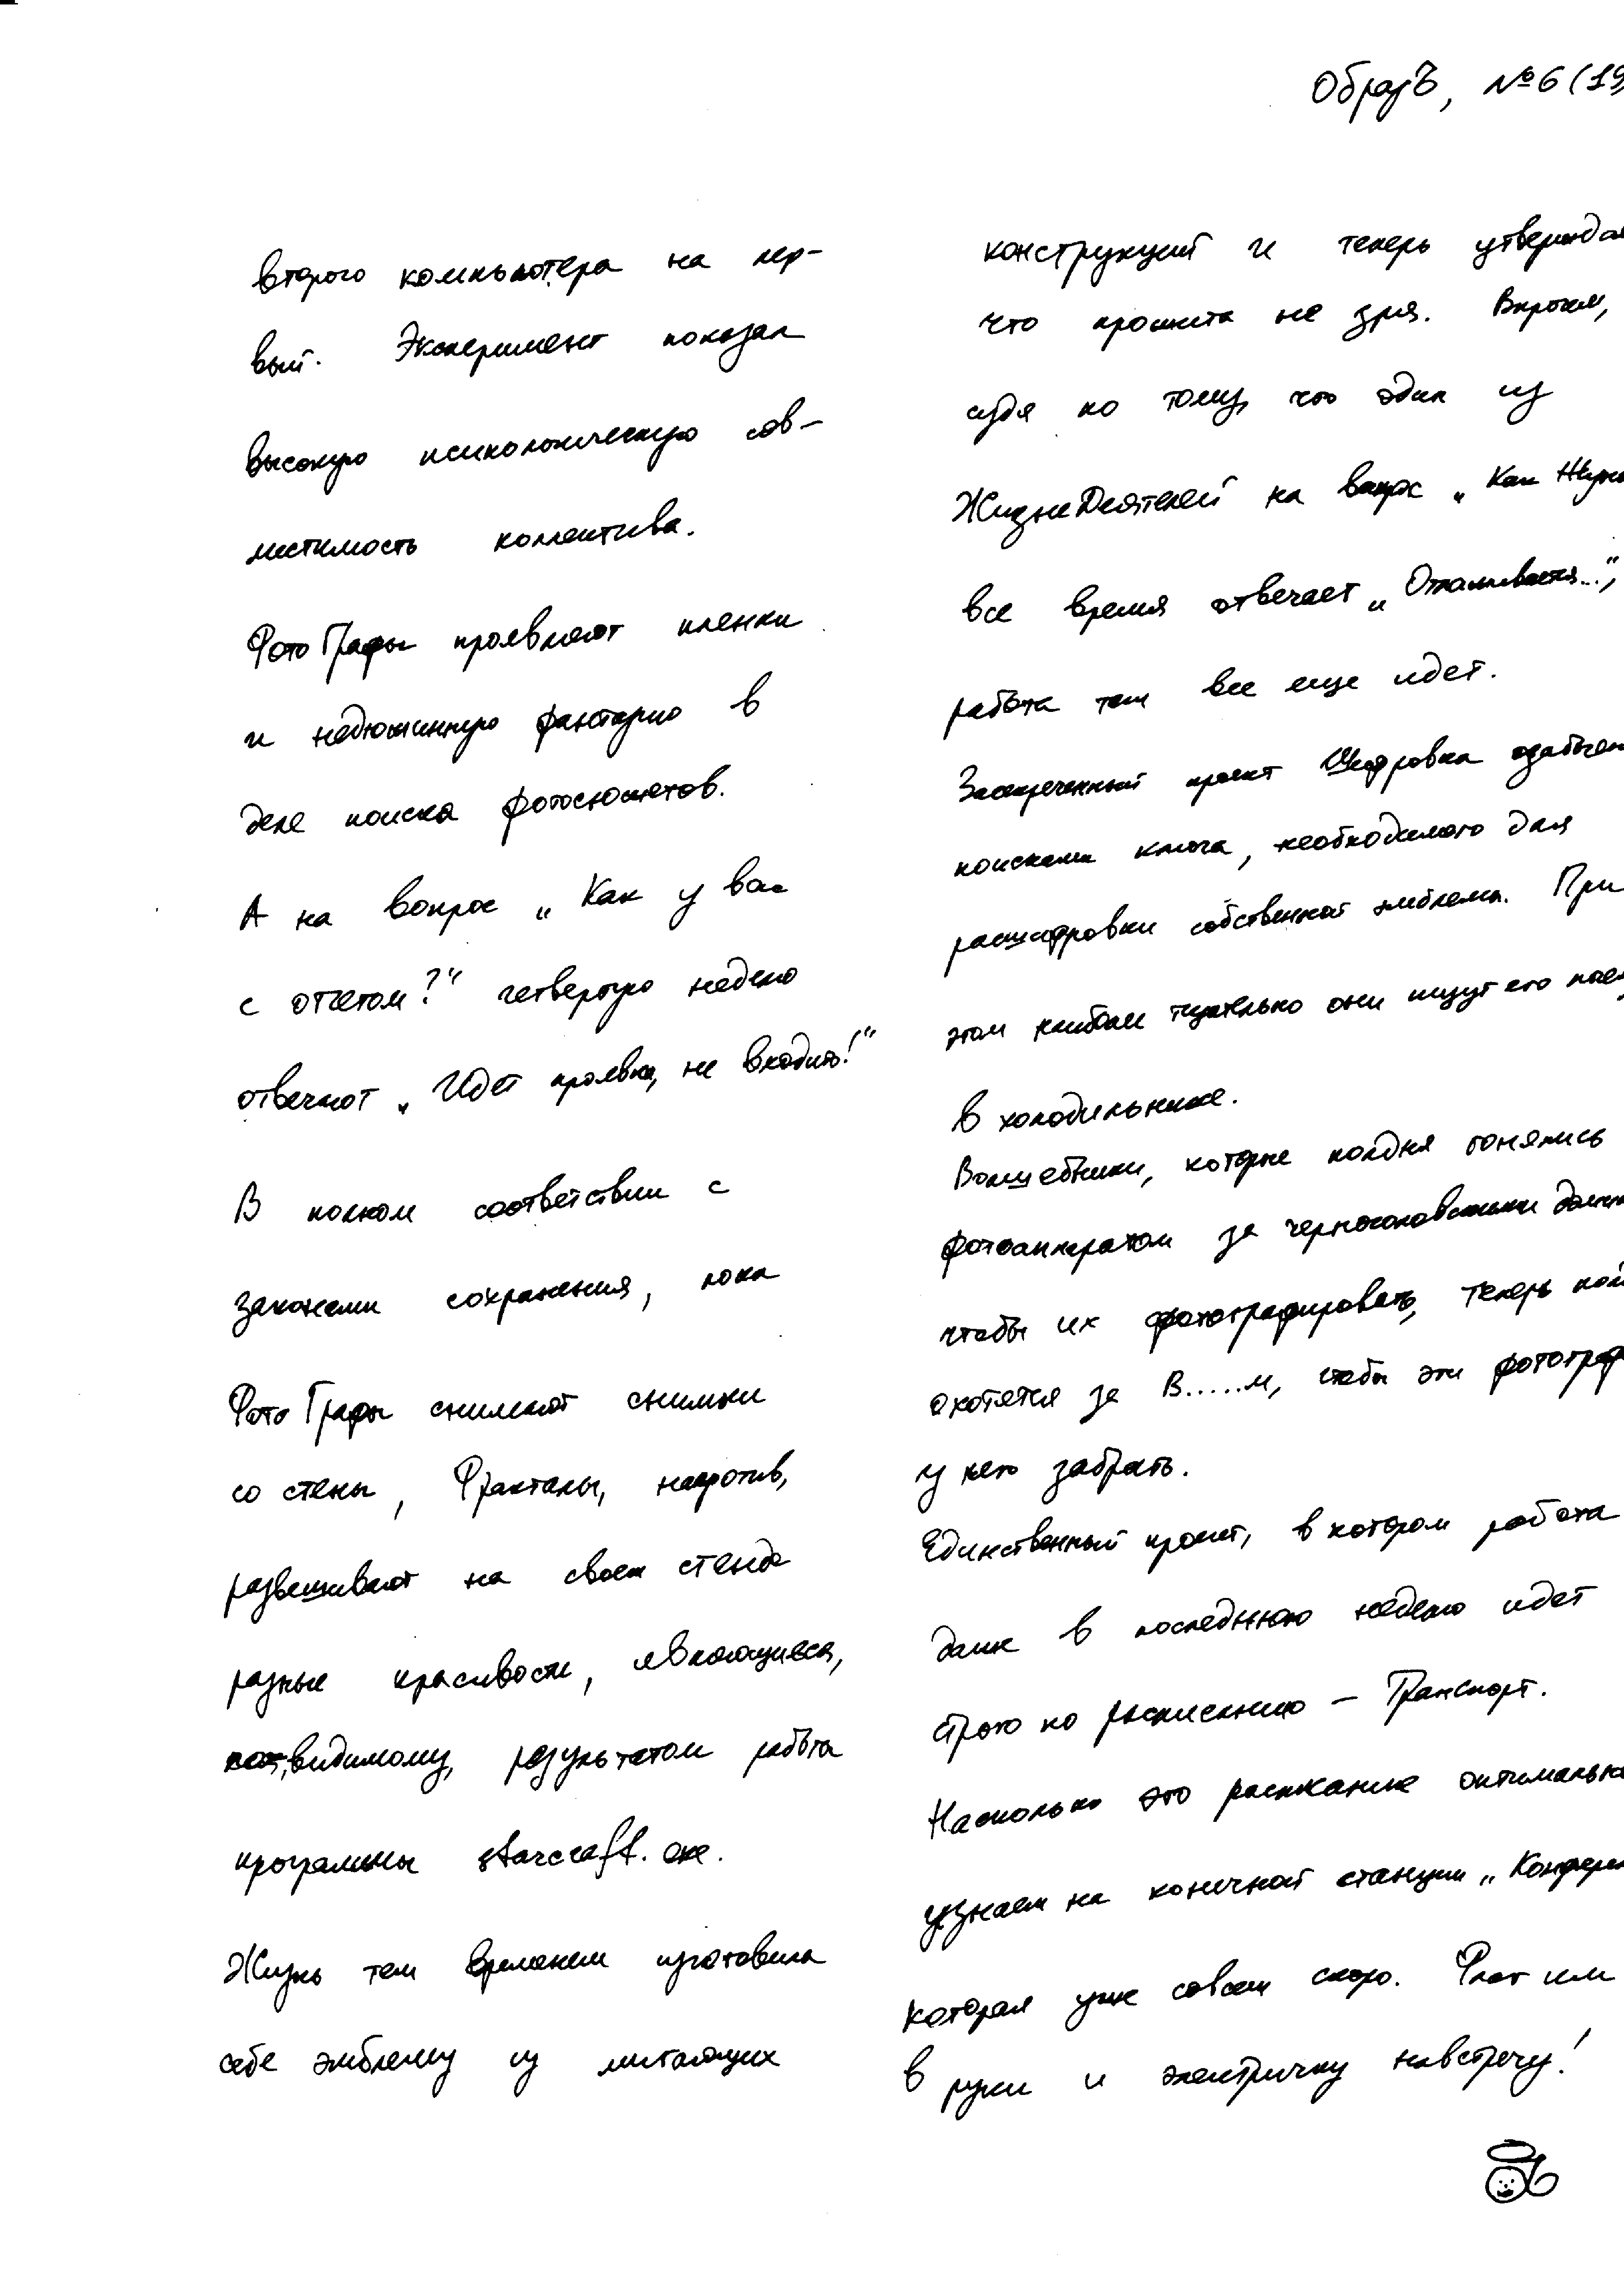 ОбразЪ, №6 (19
второго компьютера на пер-
вый. Эксперимент показал
высокую психологическую сов-
местимость коллектива.
ФотоГрафы проявляют пленки
и недюжинную фантазию в
деле поиска фотосюжетов.
А на вопрос „Как у вас
с отчетом?“ четвертую неделю
отвечают „Идет проявка, не входить!“
В полном соответствии с
законами сохранения, пока
ФотоГрафы снимают снимки
со стены, Фракталы, напротив,
развешивают на своем стенде
разные красивости, являющиеся,
видимому, результатом работы
программы starcraft.exe.
Жизнь тем временем изготовила
себе эмблему из мигающих
конструкций и теперь утверждае
что прожита не зря. Впрочем,
судя по тому, что один из
ЖизнеДеятелей на вопрос „Как Жизнь
все время отвечает „Отлаживается...“,
работа там все еще идет.
Засекреченный проект Шифровка озабочен
поисками ключа, необходимого для
расшифровки собственной эмблемы. При
этом наиболее тщательно они ищут его
в холодильнике.
Волшебники, которые полдня гонялись
фотоаппаратом за черноголовскими
чтобы их фотографировать, теперь
охотятся за В.....м, чтобы эти фотограф
у него забрать.
Единственный проект, в котором работа
даже в последнюю неделю идет
строго по расписанию — Транспорт.
Насколько это расписание оптимально
узнаем на конечной станции „Конферен
которая уже совсем скоро. Флаг им
в руки и электричку навстречу!